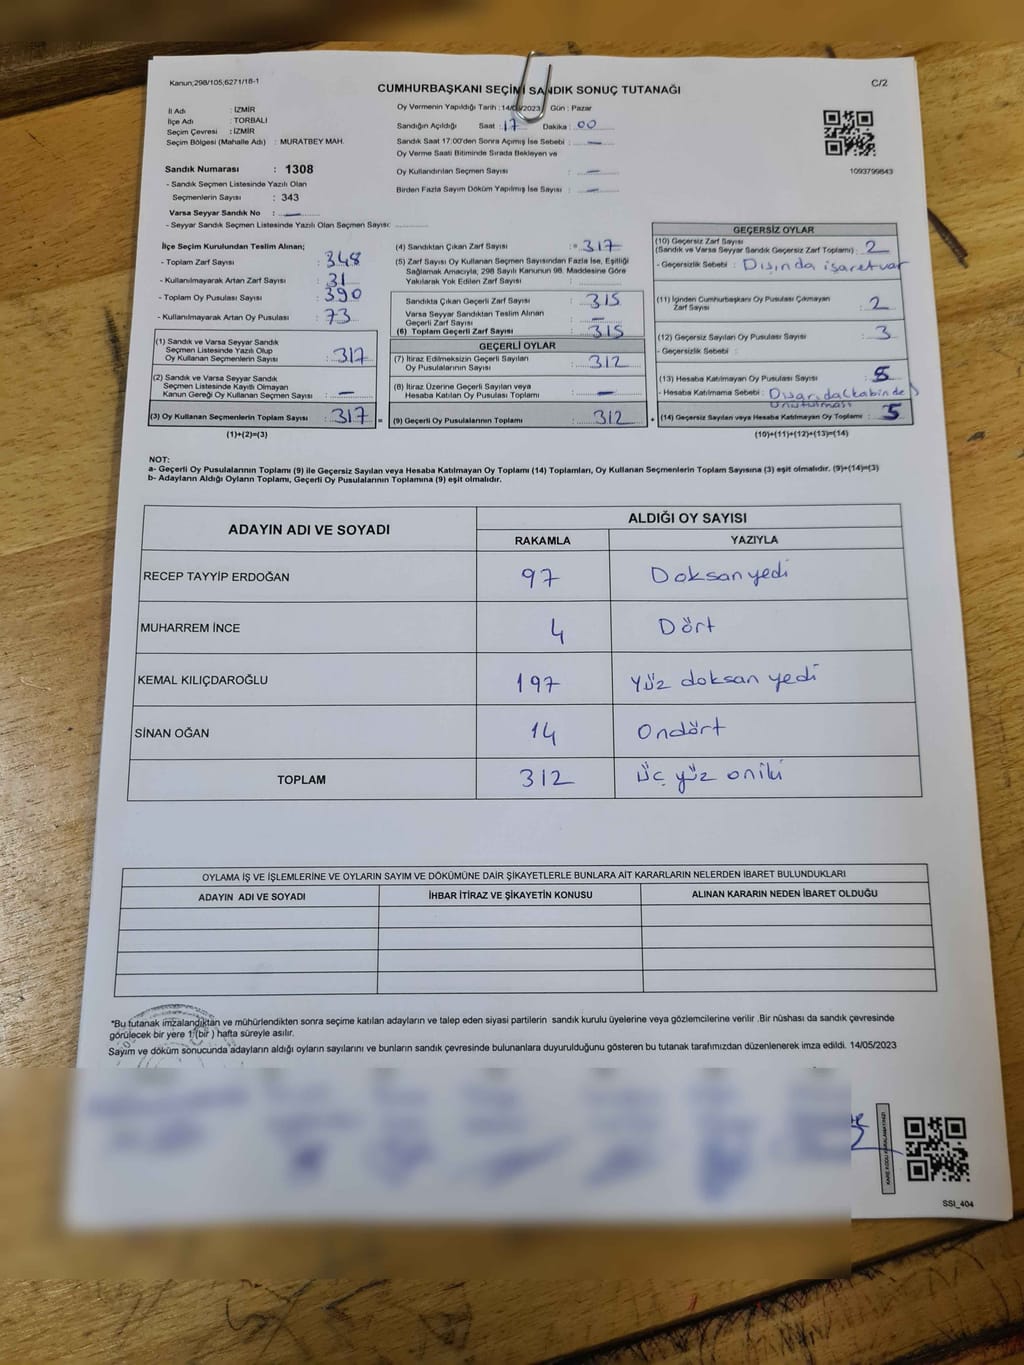 Kanun;298/105;6271/18-1
CUMHURBAŞKANI SEÇİMİ SANDIK SONUÇ TUTANAĞI
C/2
İl Adı : İZMİR
İlçe Adı : TORBALI
Seçim Çevresi : İZMİR
Seçim Bölgesi (Mahalle Adı) : MURATBEY MAH.
Sandık Numarası : 1308
- Sandık Seçmen Listesinde Yazılı Olan
Seçmenlerin Sayısı : 343
Varsa Seyyar Sandık No : —
- Seyyar Sandık Seçmen Listesinde Yazılı Olan Seçmen Sayısı:
Oy Vermenin Yapıldığı Tarih :14/05/2023 Gün : Pazar
Sandığın Açıldığı Saat : 17 Dakika : 00
Sandık Saat 17:00'den Sonra Açımış İse Sebebi : —
Oy Verme Saati Bitiminde Sırada Bekleyen ve
Oy Kullandırılan Seçmen Sayısı : —
Birden Fazla Sayım Döküm Yapılmış İse Sayısı : —
1093799843
İlçe Seçim Kurulundan Teslim Alınan;
- Toplam Zarf Sayısı : 348
- Kullanılmayarak Artan Zarf Sayısı : 31
- Toplam Oy Pusulası Sayısı : 390
- Kullanılmayarak Artan Oy Pusulası : 73
(1) Sandık ve Varsa Seyyar Sandık
Seçmen Listesinde Yazılı Olup
Oy Kullanan Seçmenlerin Sayısı : 317
(2) Sandık ve Varsa Seyyar Sandık
Seçmen Listesinde Kayıtlı Olmayan
Kanun Gereği Oy Kullanan Seçmen Sayısı : —
(3) Oy Kullanan Seçmenlerin Toplam Sayısı : 317 =
(1)+(2)=(3)
(4) Sandıktan Çıkan Zarf Sayısı : 317
(5) Zarf Sayısı Oy Kullanan Seçmen Sayısından Fazla İse, Eşitliği
Sağlamak Amacıyla, 298 Sayılı Kanunun 98. Maddesine Göre
Yakılarak Yok Edilen Zarf Sayısı :
Sandıkta Çıkan Geçerli Zarf Sayısı : 315
Varsa Seyyar Sandıktan Teslim Alınan
Geçerli Zarf Sayısı : —
(6) Toplam Geçerli Zarf Sayısı : 315
GEÇERLİ OYLAR
(7) İtiraz Edilmeksizin Geçerli Sayılan
Oy Pusulasının Sayısı : 312
(8) İtiraz Üzerine Geçerli Sayılan veya
Hesaba Katılan Oy Pusulası Toplamı : —
(9) Geçerli Oy Pusulalarının Toplamı : 312 +
GEÇERSİZ OYLAR
(10) Geçersiz Zarf Sayısı
(Sandık ve Varsa Seyyar Sandık Geçersiz Zarf Toplamı) : 2
- Geçersizlik Sebebi : Dışında işaret var
(11) İçinden Cumhurbaşkanı Oy Pusulası Çıkmayan
Zarf Sayısı : 2
(12) Geçersiz Sayılan Oy Pusulası Sayısı : 3
- Geçersizlik Sebebi :
(13) Hesaba Katılmayan Oy Pusulası Sayısı : 5
- Hesaba Katılmama Sebebi : Dışarıda(kabinde)
Unutulması
(14) Geçersiz Sayılan veya Hesaba Katılmayan Oy Toplamı : 5
(10)+(11)+(12)+(13)=(14)
NOT:
a- Geçerli Oy Pusulalarının Toplamı (9) ile Geçersiz Sayılan veya Hesaba Katılmayan Oy Toplamı (14) Toplamları, Oy Kullanan Seçmenlerin Toplam Sayısına (3) eşit olmalıdır. (9)+(14)=(3)
b- Adayların Aldığı Oyların Toplamı, Geçerli Oy Pusulalarının Toplamına (9) eşit olmalıdır.
ADAYIN ADI VE SOYADI
ALDIĞI OY SAYISI
RAKAMLA YAZIYLA
RECEP TAYYİP ERDOĞAN 97 Doksanyedi
MUHARREM İNCE 4 Dört
KEMAL KILIÇDAROĞLU 197 Yüz doksan yedi
SİNAN OĞAN 14 Ondört
TOPLAM 312 Üç yüz oniki
OYLAMA İŞ VE İŞLEMLERİNE VE OYLARIN SAYIM VE DÖKÜMÜNE DAİR ŞİKAYETLERLE BUNLARA AİT KARARLARIN NELERDEN İBARET BULUNDUKLARI
ADAYIN ADI VE SOYADI İHBAR İTİRAZ VE ŞİKAYETİN KONUSU ALINAN KARARIN NEDEN İBARET OLDUĞU
*Bu tutanak imzalandıktan ve mühürlendikten sonra seçime katılan adayların ve talep eden siyasi partilerin sandık kurulu üyelerine veya gözlemcilerine verilir .Bir nüshası da sandık çevresinde
görülecek bir yere 1 (bir ) hafta süreyle asılır.
Sayım ve döküm sonucunda adayların aldığı oyların sayılarını ve bunların sandık çevresinde bulunanlara duyurulduğunu gösteren bu tutanak tarafımızdan düzenlenerek imza edildi. 14/05/2023
KARE KODU KARALAMAYINIZ!
SSI_404